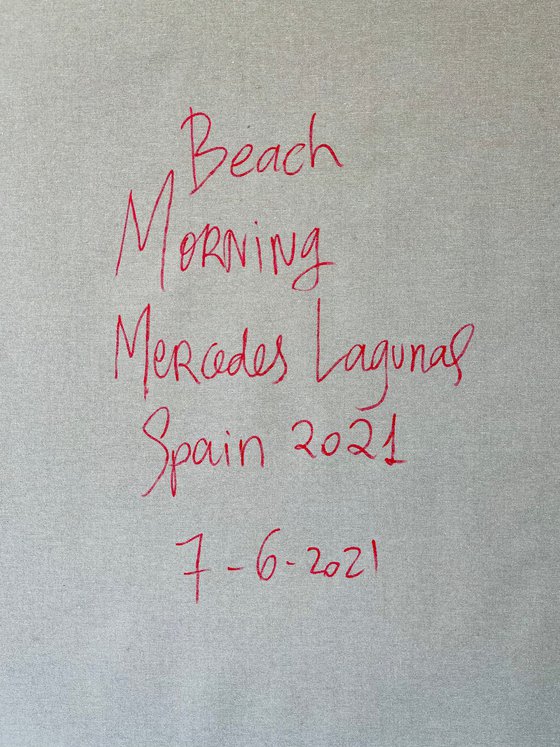 Beach
MORNING
Mercedes Lagunas
Spain 2021
7-6-2021